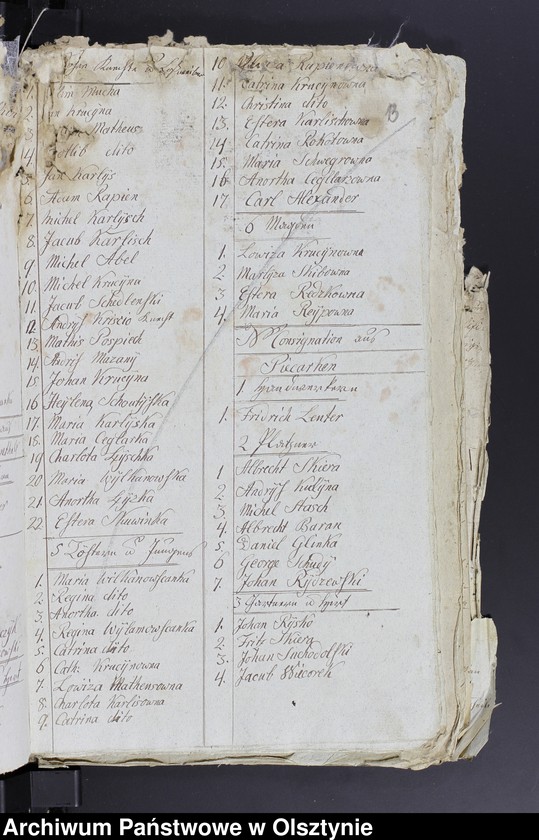 1. Mucha
2. Krucÿna
3. Matheus
4. Gotlib dito
5. Jan Karlÿs
6 Adam Rapien
7 Michel Karlÿsch
8. Jacub Karlisch
9 Michel Abel
10. Michel Krucÿna
11. Jacub Schedlenski
12. Andrÿs Kriscio Knecht
13. Mathis Pospiech
14. Andris Mazanÿ
15. Johan Krucÿna
16 Heÿlena
17. Maria Karlÿska
18. Maria Ceglarka
19 Charlota
20 Maria Wÿlkanowska
21. Anortha
22 Estera Skawinka
5 Töchtern u Jungens
1. Maria Wilkanowscanka
2. Regina dito
3. Anortha dito
4. Regina Wÿlamowscanka
5. Catrina dito
6 Cath: Krucÿnowna
7. Lowiza Mathensowna
8. Charlota Karlisowna
9. Catrina dito
10 Luiza
11. Catrina Krucÿnowna
12. Christina dito
13. Estera Karlischowna
14. Catrina Rokotowna
15. Maria Schwegrowna
16 Anortha Ceglarzowna
17. Carl Alexander
13
6 Magden
1. Lowiza Krucÿnowna
2 Marlÿza Skibowna
3 Estera Redzkowna
4. Maria Reÿsowna
N Consignation aus
Piecarken
1
1. Fridrich Lenter
2 Platzner
1 Albrecht Skiera
2. Andrÿs Kudÿna
3. Michel Stasch
4. Albrecht Baran
5. Daniel Glinka
6 George Schudÿ
7. Johan Rÿdzewski
3 Gartnern u Hirt
1. Johan Rÿsko
2. Fritz Skiera
3. Johan Suchodolski
4. Jacub Wiecorek
Archiwum Państwowe w Olsztynie